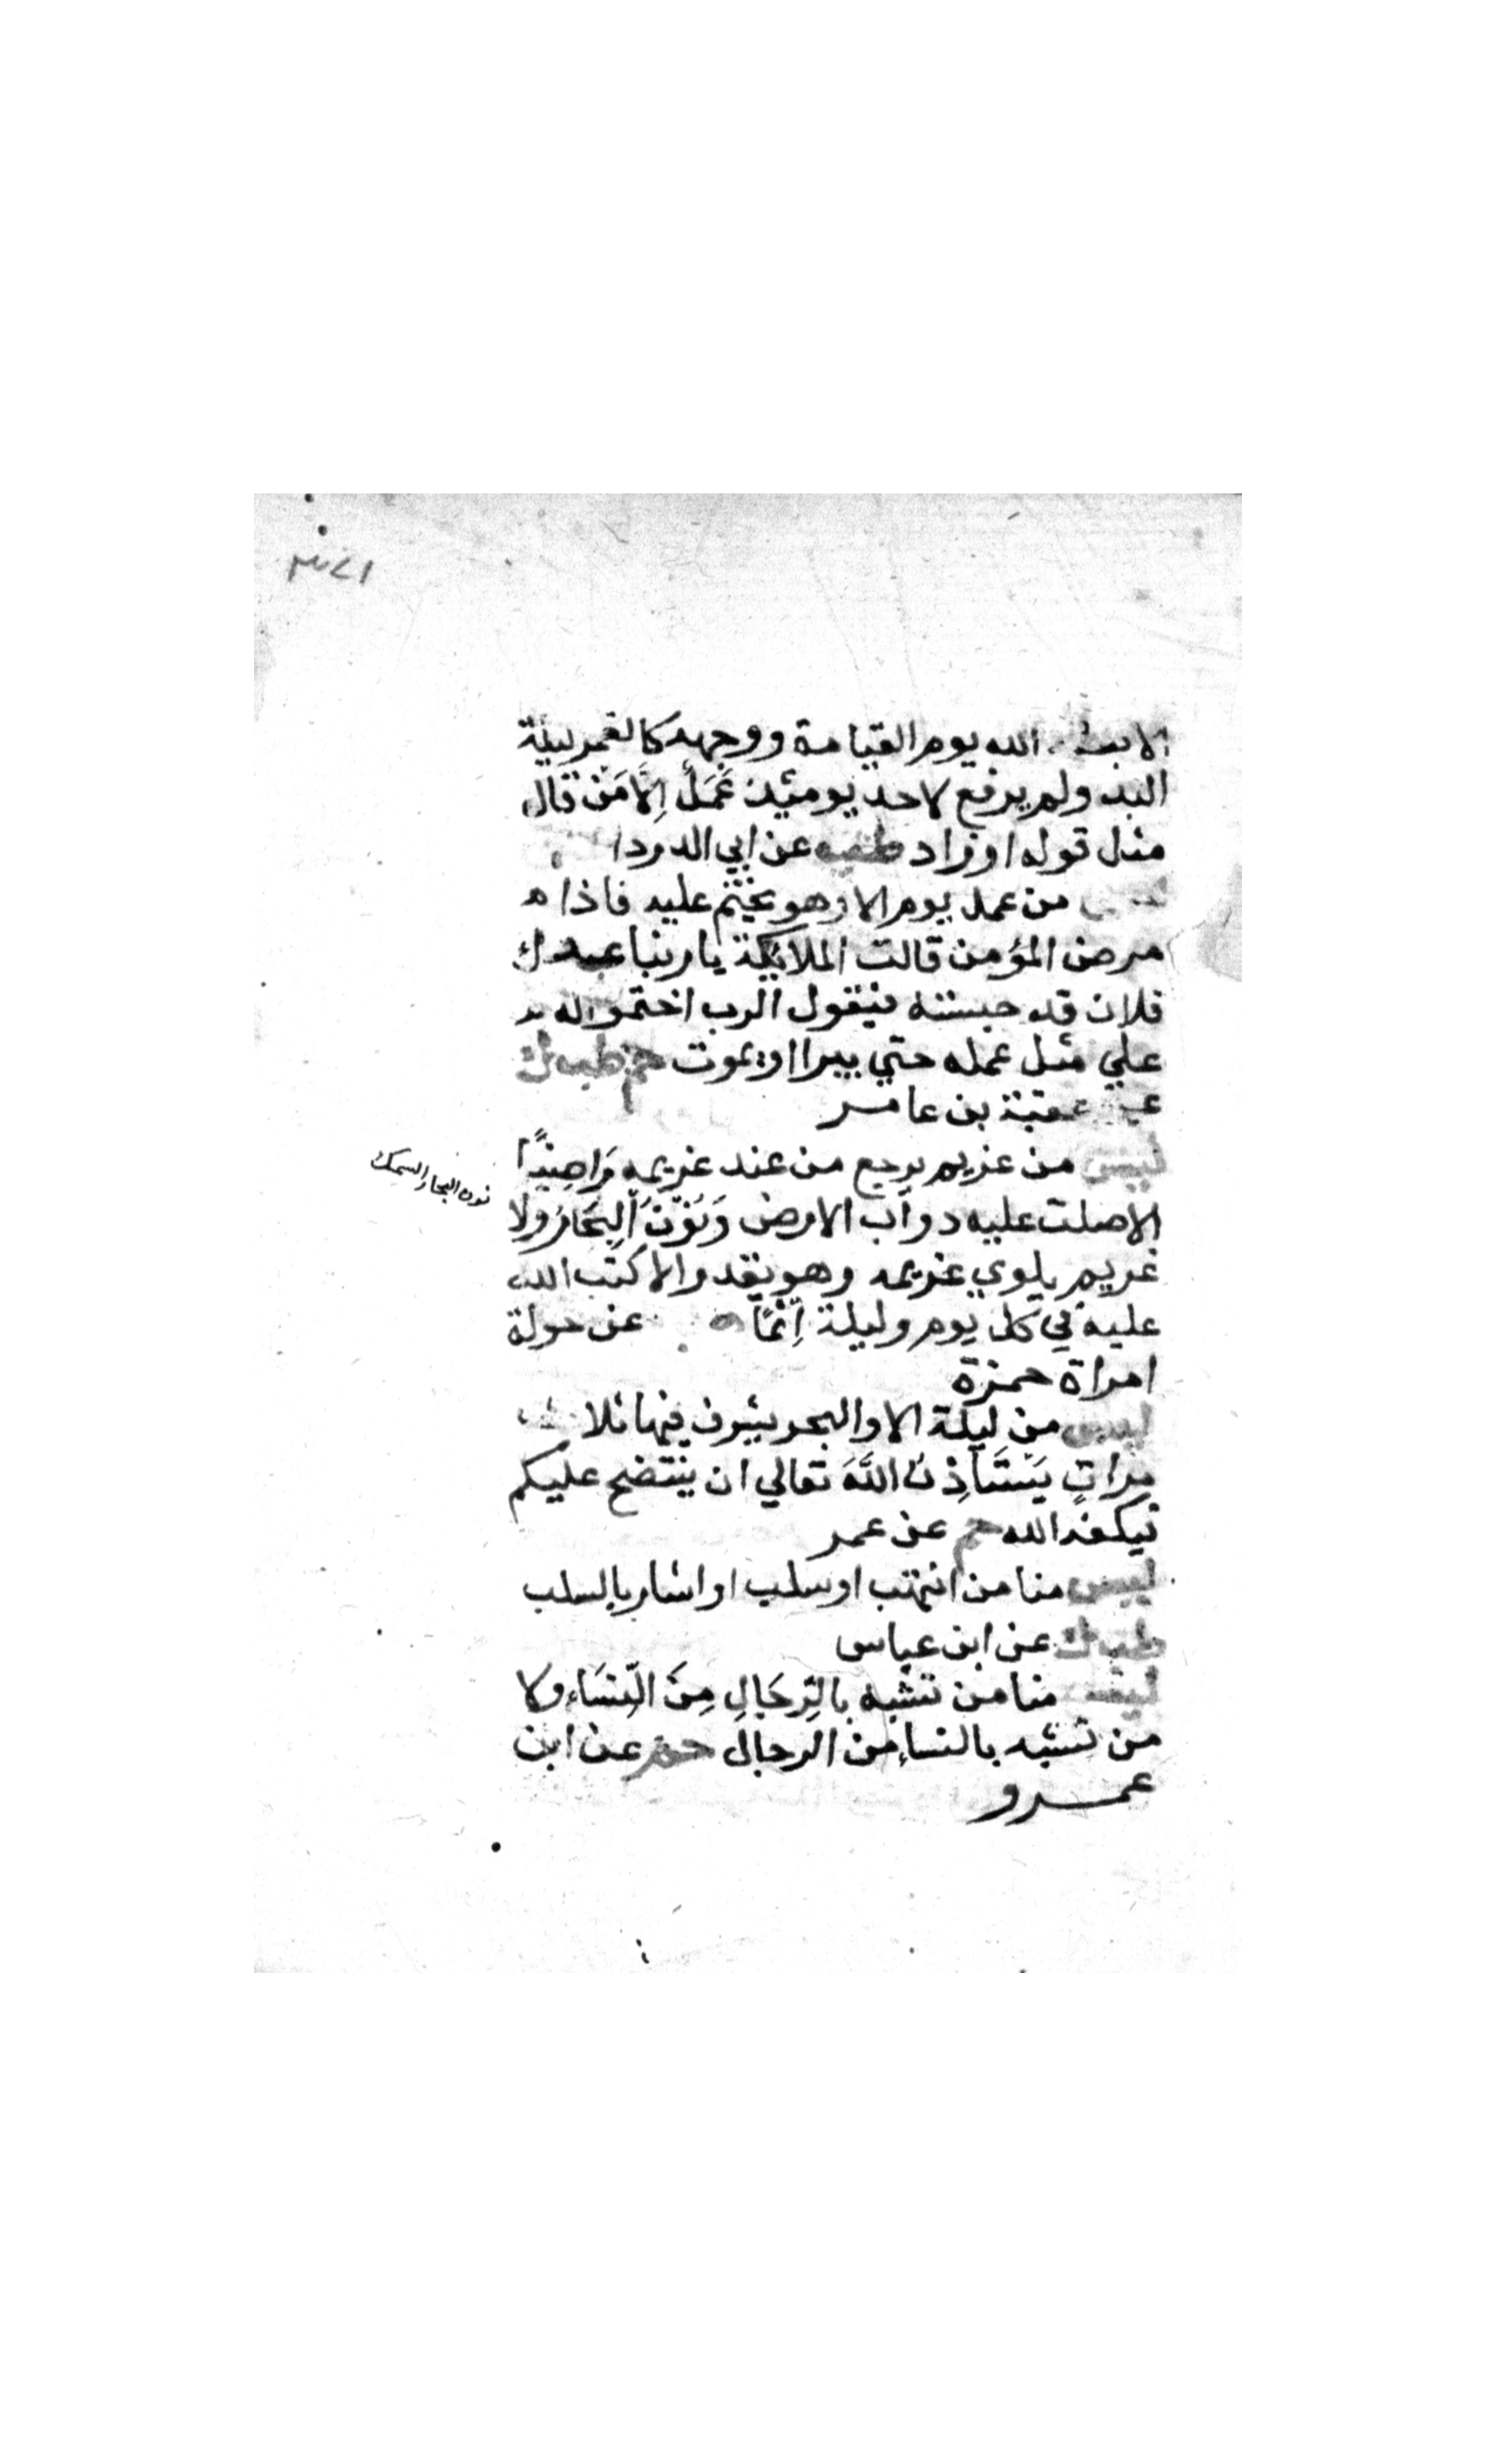 الا بعثه الله يوم القيامة ووجهه كالقمر ليلة
البد ولم يرفع لاحد يومئذ عَمَلٌ اِلَّا مَنْ قال
مثل قوله او زاد طب عن ابي الدردا
ليس من عمل يوم الا وهو يختم عليه فاذا
مرض المؤمن قالت الملائكة يا ربنا عبدك
فلان قد حبسته فيقول الرب اختموا له
علي مثل عمله حتي يبرا او يموت حم طب ك
عن عقبة بن عامر
ليس من غريم يرجع من عند غريمه رَاضِيًا
الا صلت عليه دوآب الارض وَنُوْنُ الْبِحَارِ ولا
غريم يلوي غريمه وهو يقدر الا كتب الله
عليه في كل يوم وليلة اِثْمًا عن خولة
امراة حمزة
ليس من ليلة الا والبحر يشرف فيها ثلاث
مراتٍ يَسْتَاْذِنُ اللَّهَ تعالي ان ينتضح عليكم
فيكفه الله حم عن عمر
ليس منا من انتهب او سلب او اشار بالسلب
طب ك عن ابن عباس
ليس منا من تشبه بالرِّجَالِ مِنَ النِّسَاءِ ولا
من تشبه بالنساء من الرجال حم عن ابن
عمرو
نون البحار السمك